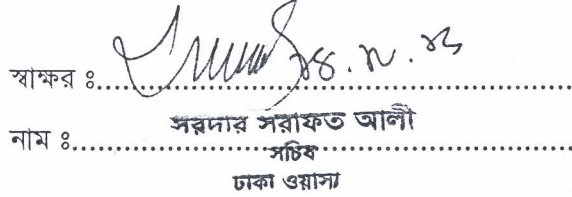 স্বাক্ষর ঃ
নাম ঃ সরদার সরাফত আলী
সচিব
ঢাকা ওয়াসা